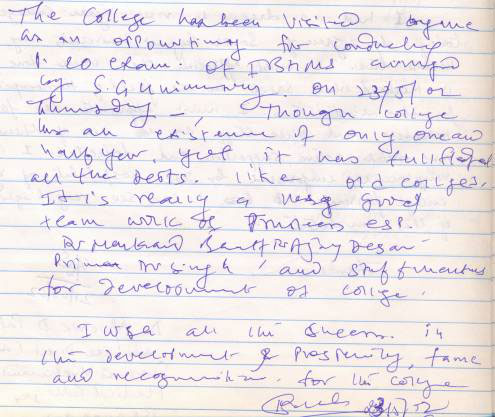 The College has been visited by me
as an opportunity for conducting
P. 20 exam. of I BHMS arranged
by S.G University. on 23/5/02
Thursday —, Though college
has an existence of only one and
half year, yet it has fullfilled
all the tests. like old colleges.
It is really a very good
team work of Trustees esp.
Dr Markand Bhatt Dr Ajay Desai
Dr Singh, and staff members
for development of college.
I wish all the success. in
the development & Prosperity, fame
and recognition. for the college
23/5/02